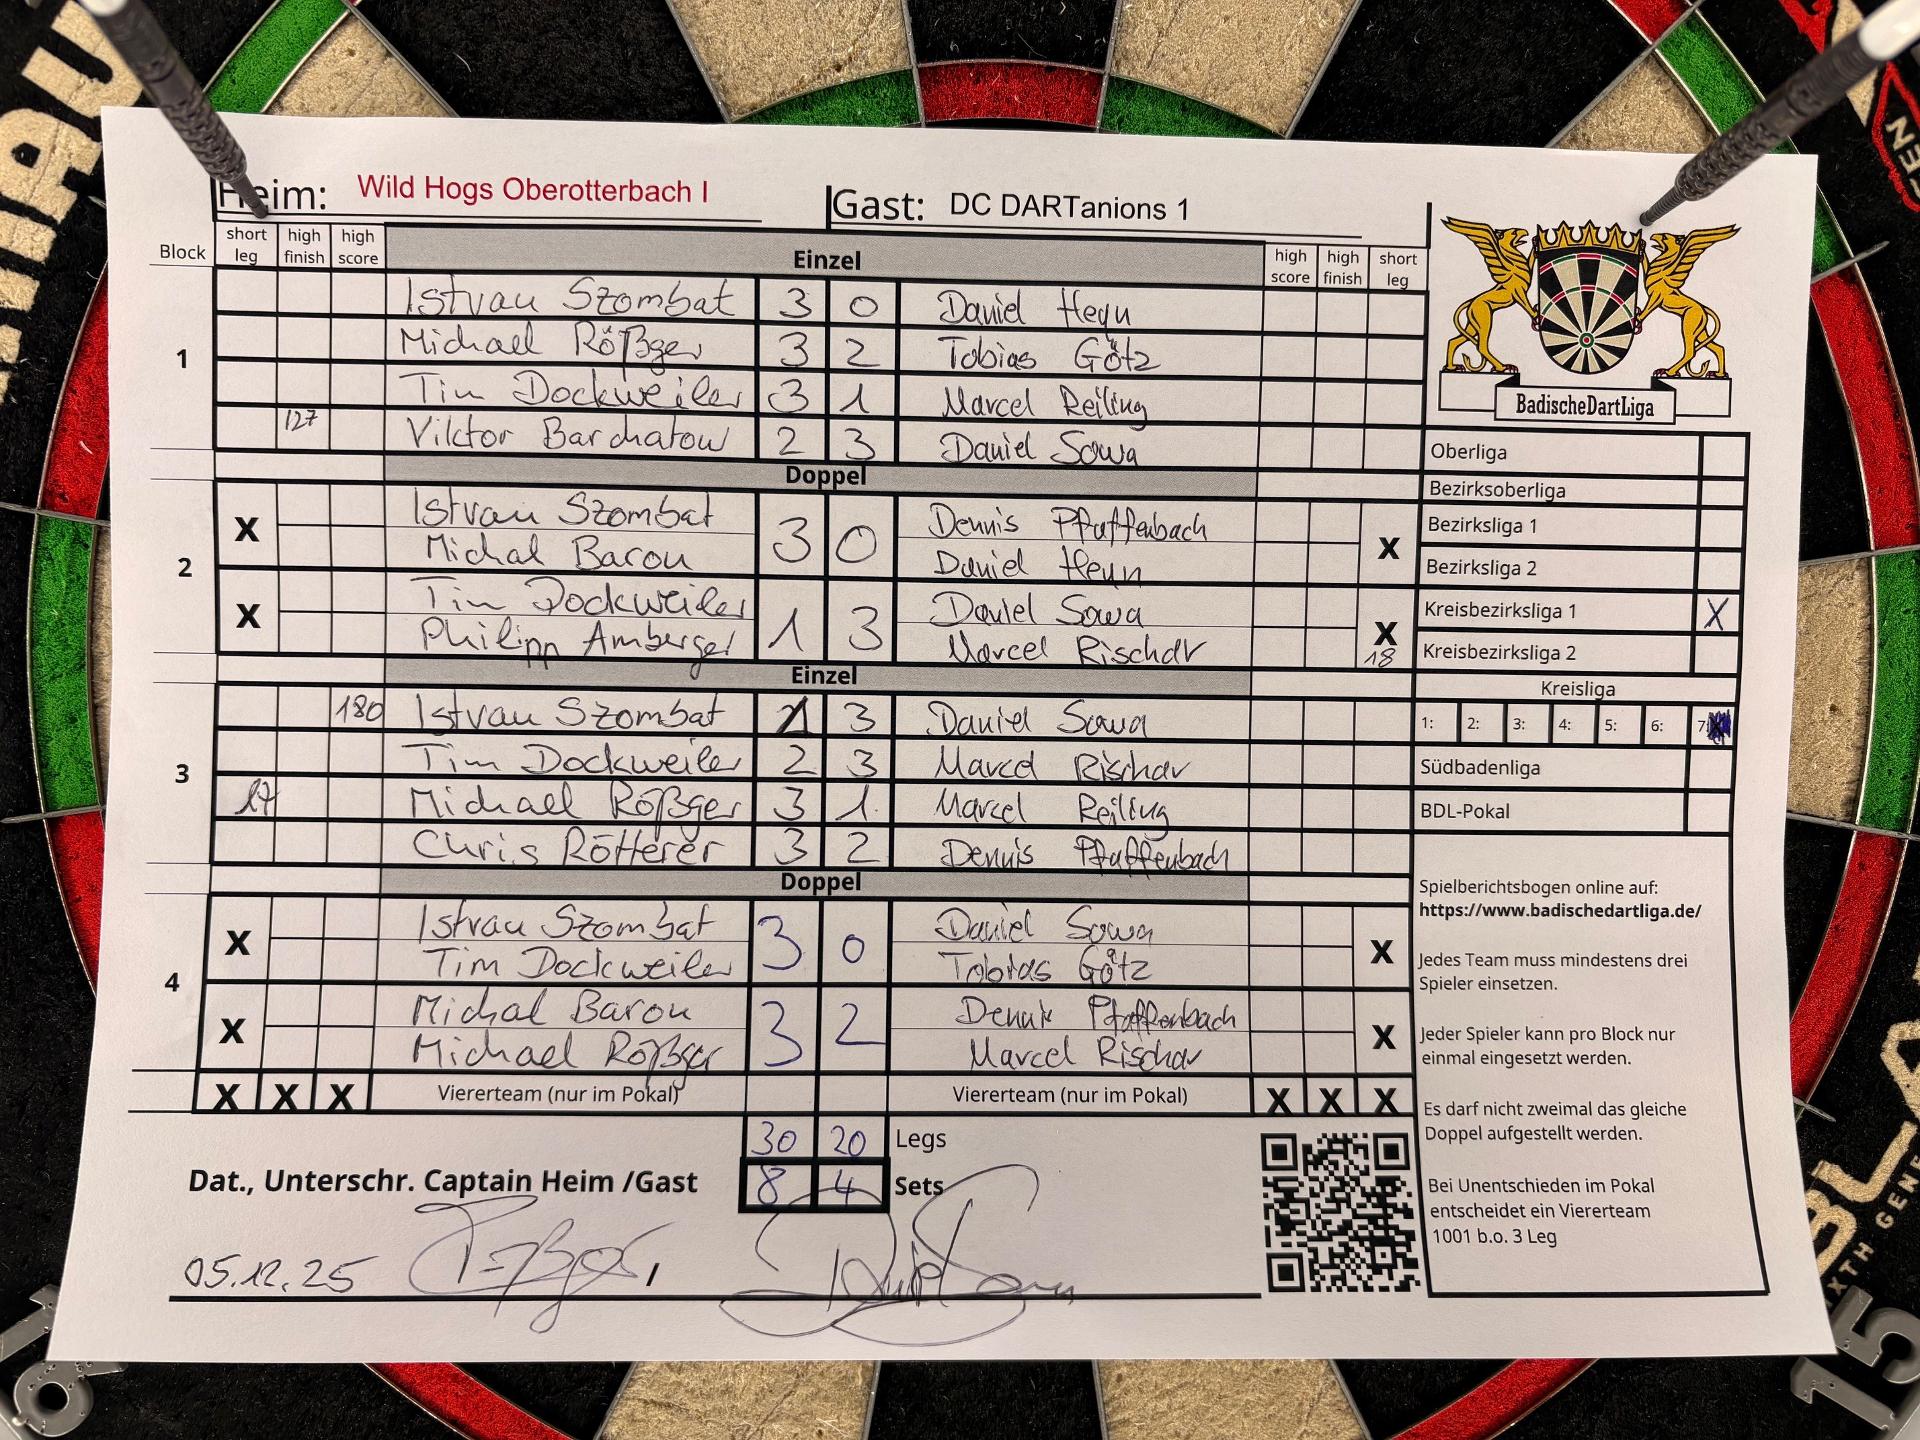 Heim: Wild Hogs Oberotterbach I Gast: DC DARTanions 1
Block short leg high finish high score Einzel high score high finish short leg
1
Istvan Szombat 3 0 Daniel Heyn
Michael Rößger 3 2 Tobias Götz
Tim Dockweiler 3 1 Marcel Reiling
127 Viktor Barchatow 2 3 Daniel Sowa
Doppel
2
X Istvan Szombat 3 0 Dennis Pfaffenbach X
Michal Baron Daniel Heyn
X Tim Dockweiler 1 3 Daniel Sowa X
Philipp Amberger Marcel Rischar 18
Einzel
3
180 Istvan Szombat 1 3 Daniel Sowa
Tim Dockweiler 2 3 Marcel Rischar
17 Michael Rößger 3 1 Marcel Reiling
Chris Rötterer 3 2 Dennis Pfaffenbach
Doppel
4
X Istvan Szombat 3 0 Daniel Sowa X
Tim Dockweiler Tobias Götz
X Michal Baron 3 2 Dennis Pfaffenbach X
Michael Rößger Marcel Rischar
X X X Viererteam (nur im Pokal) Viererteam (nur im Pokal) X X X
30 20 Legs
Dat., Unterschr. Captain Heim /Gast 8 4 Sets
05.12.25
BadischeDartLiga
Oberliga
Bezirksoberliga
Bezirksliga 1
Bezirksliga 2
Kreisbezirksliga 1 X
Kreisbezirksliga 2
Kreisliga
1: 2: 3: 4: 5: 6: 7:
Südbadenliga
BDL-Pokal
Spielberichtsbogen online auf:
https://www.badischedartliga.de/
Jedes Team muss mindestens drei
Spieler einsetzen.
Jeder Spieler kann pro Block nur
einmal eingesetzt werden.
Es darf nicht zweimal das gleiche
Doppel aufgestellt werden.
Bei Unentschieden im Pokal
entscheidet ein Viererteam
1001 b.o. 3 Leg
15